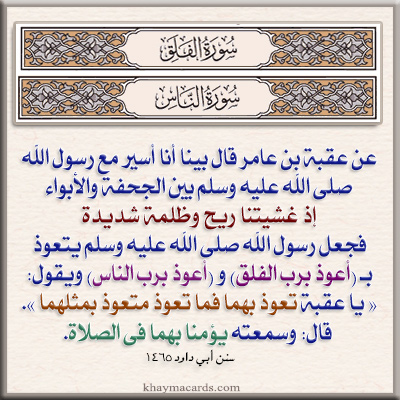 سورة الفلق
سورة الناس
عن عقبة بن عامر قال بينا أنا أسير مع رسول الله
صلى الله عليه وسلم بين الجحفة والأبواء
إذ غشيتنا ريح وظلمة شديدة
فجعل رسول الله صلى الله عليه وسلم يتعوذ
بـ (أعوذ برب الفلق) و (أعوذ برب الناس) ويقول:
« يا عقبة تعوذ بهما فما تعوذ متعوذ بمثلهما ».
قال: وسمعته يؤمنا بهما فى الصلاة.
سنن أبي داود ١٤٦٥
khaymacards.com